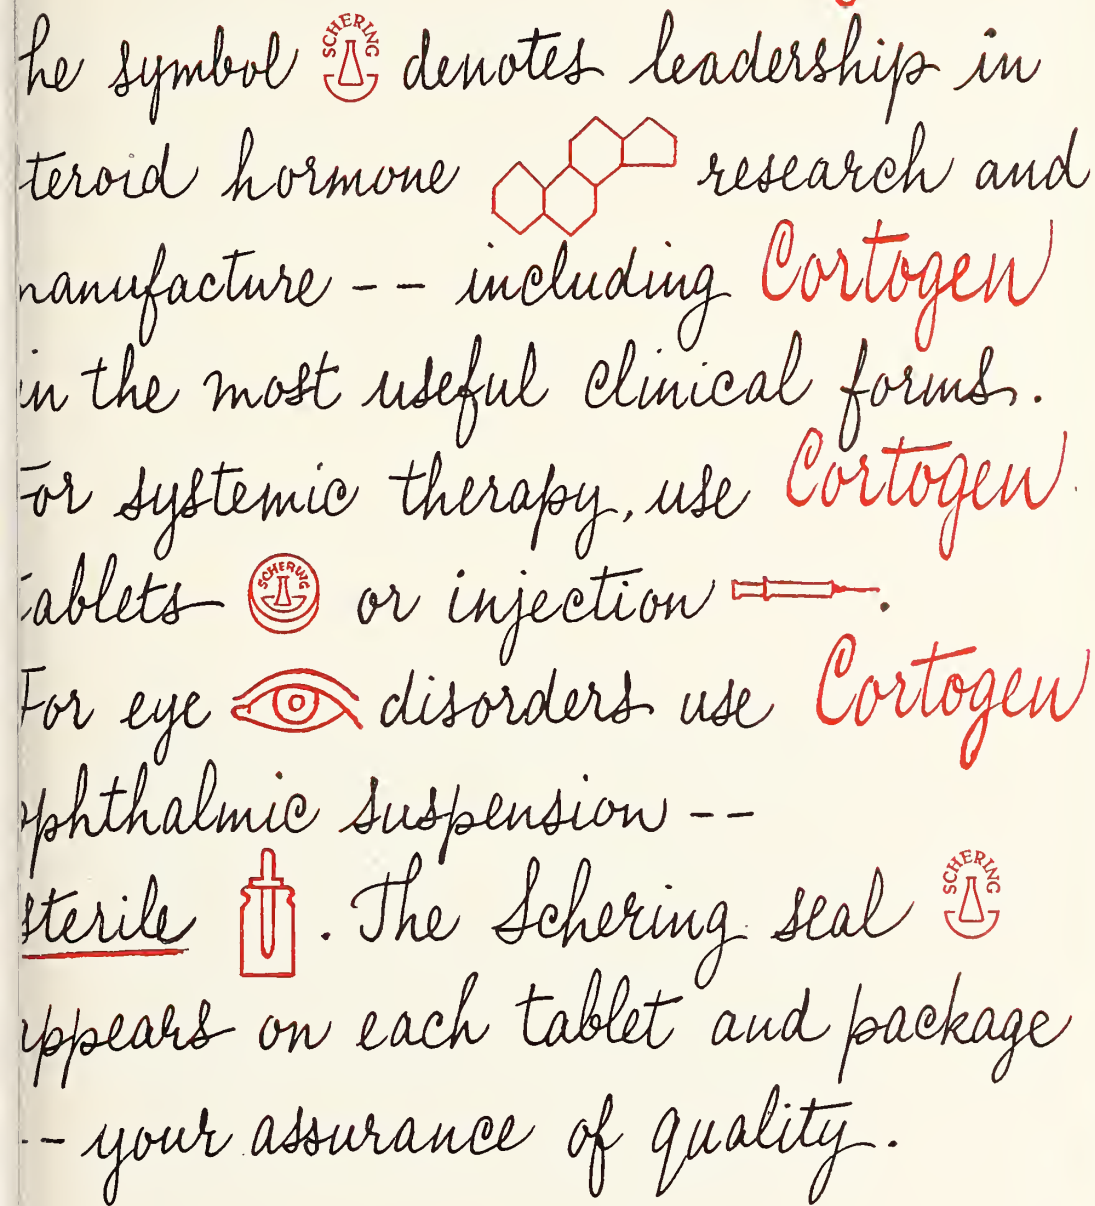 he symbol SCHERING denotes leadership in
teroid hormone research and
manufacture -- including Cortogen
in the most useful clinical forms.
For systemic therapy, use Cortogen
tablets SCHERING or injection.
For eye disorders use Cortogen
ophthalmic suspension --
sterile. The Schering seal SCHERING
appears on each tablet and package
-- your assurance of quality.